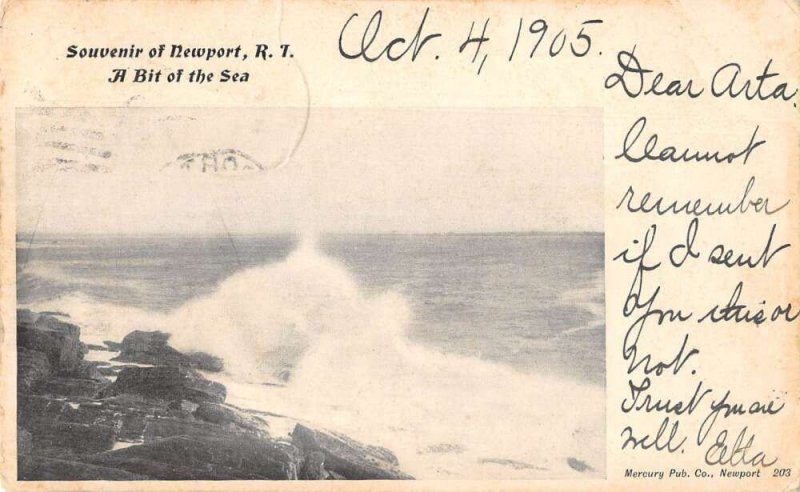 Souvenir of Newport, R. I.
A Bit of the Sea
Oct. 4, 1905.
Dear Arta,
Cannot
remember
if I sent
you this or
not.
Trust you are
well. Etta
Mercury Pub. Co., Newport 203